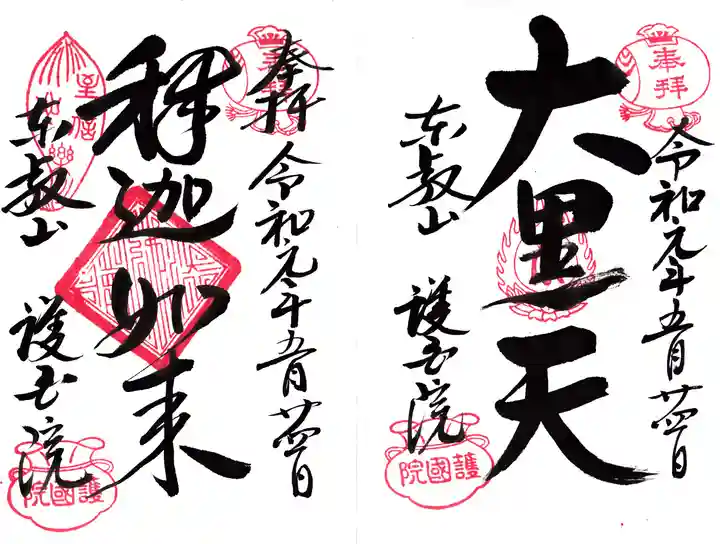 奉拝
大黒天
令和元年五月廿四日
東叡山
護国院
護國院
奉拝
釈迦如来
令和元年五月廿四日
東叡山
護国院
護國院